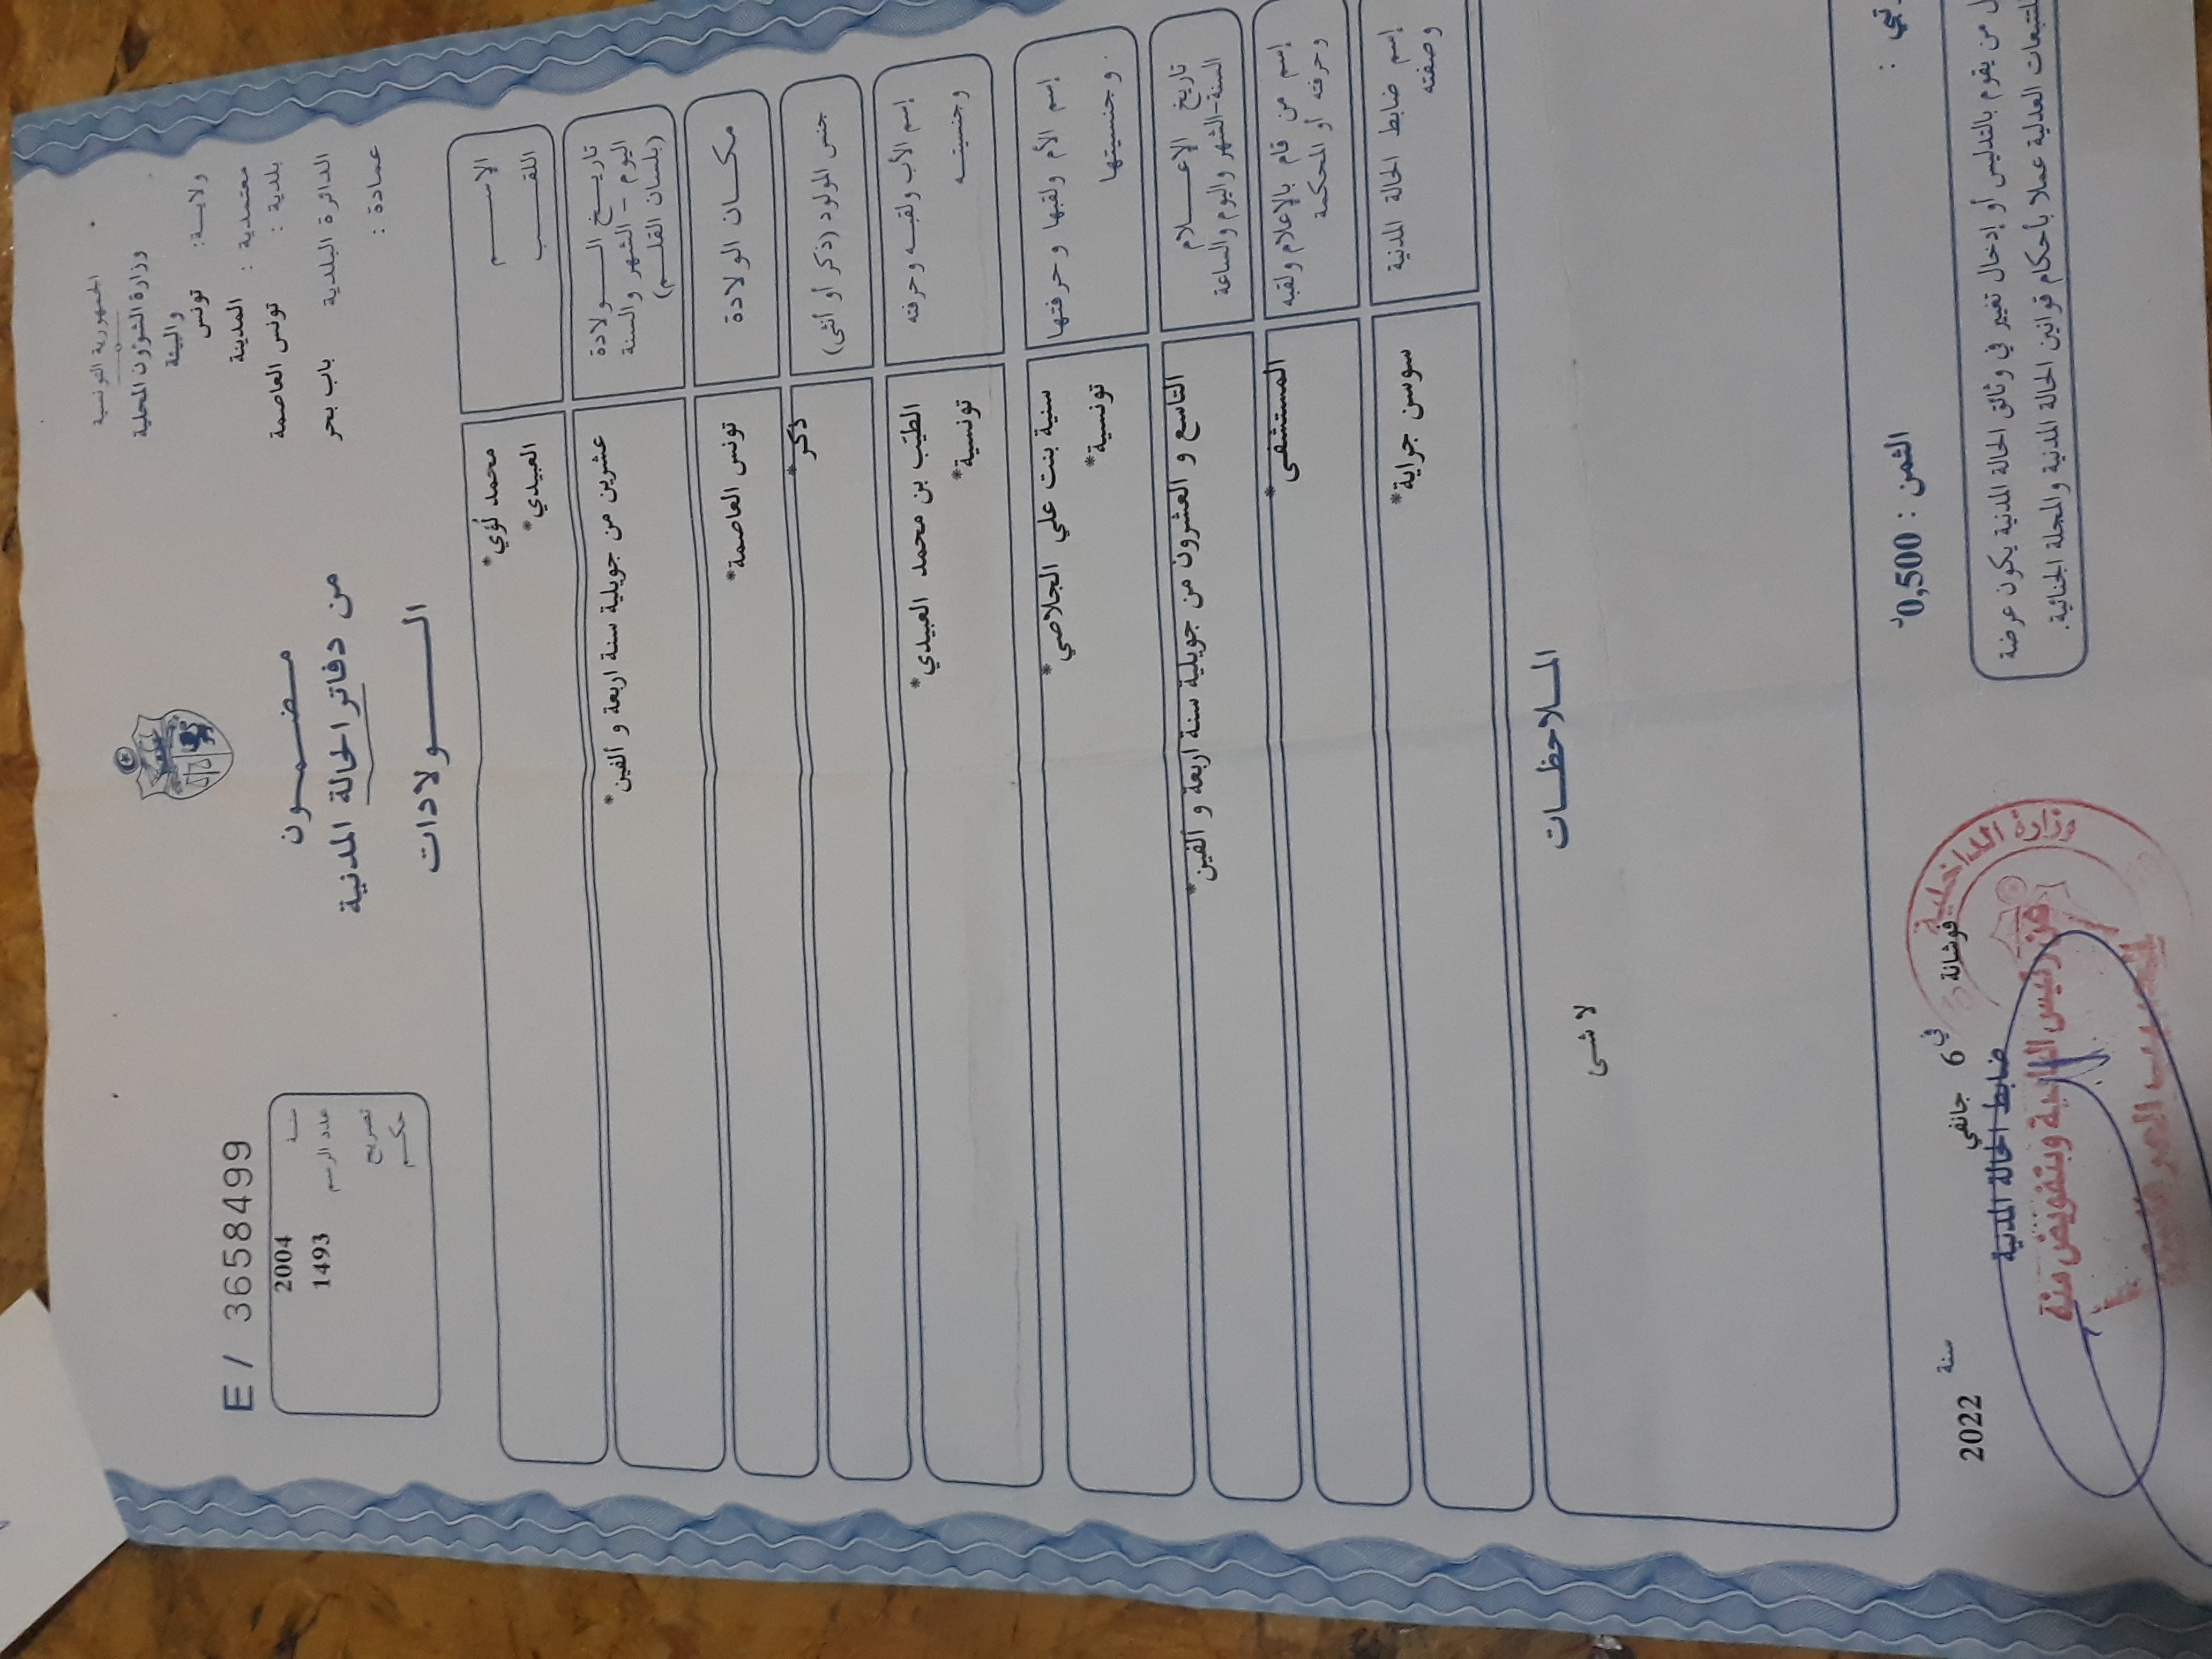 الجمهورية التونسية
وزارة الشؤون المحلية
والبيئة
ولاية: تونس
معتمدية : المدينة
بلدية : تونس العاصمة
الدائرة البلدية باب بحر
عمادة :
مضمون
من دفاتر الحالة المدنية
الولادات
E / 3658499
سنة 2004
عدد الرسم 1493
تصريح
حكم
الاسم محمد لؤي*
اللقب العبيدي*
تاريخ الولادة
اليوم - الشهر والسنة
(بلسان القلم)
عشرين من جويلية سنة اربعة و ألفين*
مكان الولادة تونس العاصمة*
جنس المولود (ذكر أو أنثى) ذكر*
إسم الأب ولقبه وحرفته الطيب بن محمد العبيدي*
وجنسيته تونسية*
إسم الأم ولقبها وحرفتها سنية بنت علي الجلاصي*
وجنسيتها تونسية*
تاريخ الإعلام
السنة-الشهر واليوم والساعة
التاسع و العشرون من جويلية سنة اربعة و ألفين*
إسم من قام بالإعلام ولقبه
وحرفته أو المحكمة
المستشفى*
إسم ضابط الحالة المدنية
وصفته
سوسن جراية*
الملاحظات
لا شى
الثمن : 0,500د
من يقوم بالتدليس أو إدخال تغيير في وثائق الحالة المدنية يكون عرضة
للتتبعات العدلية عملا بأحكام قوانين الحالة المدنية والمجلة الجنائية.
فوشانة في 6 جانفي سنة 2022
ضابط الحالة المدنية
وزارة الداخلية
عن رئيس البلدية وبتفويض منه